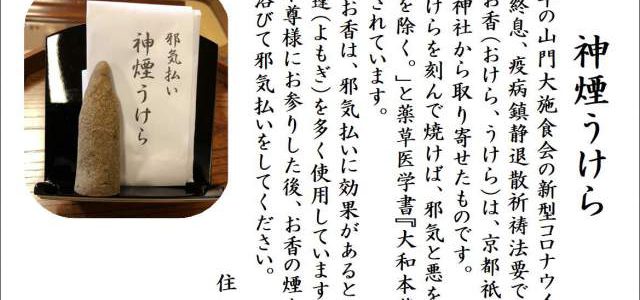 神煙うけら
年の山門大施食会の新型コロナウイ
終息、疫病鎮静退散祈祷法要で
お香(おけら、うけら)は、京都祇
神社から取り寄せたものです。
けらを刻んで焼けば、邪気と悪
を除く。」と薬草医学書『大和本
されています。
お香は、邪気払いに効果があると
蓬(よもぎ)を多く使用しています
尊様にお参りした後、お香の煙
浴びて邪気払いをしてください。
住
邪気払い
神煙うけら